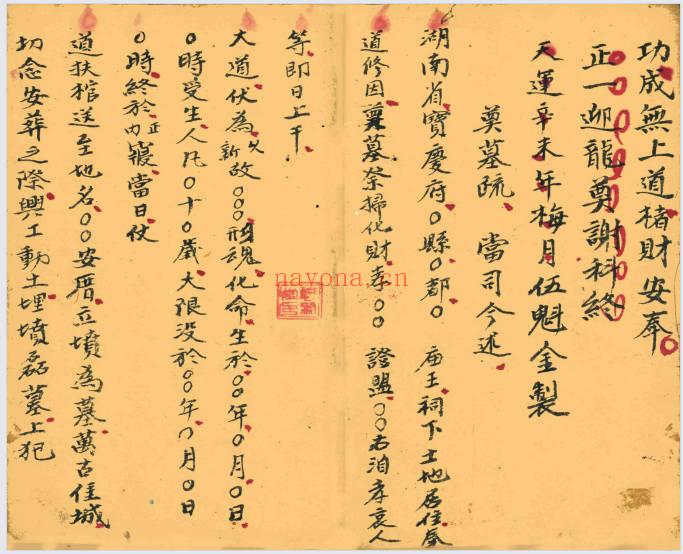 功成無上道楮財安奉
正一迎龍奠謝科終
天運辛未年梅月伍魁金製
奠墓疏 當司今述
湖南省寶慶府〇縣〇都〇 庙王祠下土地居住奉
道修因奠墓祭掃化財孝〇〇 證盟〇〇右洎孝哀人
等即日上干
大道伏為新故〇〇〇形魂化命生於〇〇年〇月〇日
〇時受生人凡〇十〇歲大限没於〇〇年〇月〇日
〇時終於正寢當日仗
道扶棺送至地名〇〇安厝立墳為墓萬古佳城
切念安葬之際興工動土埋墳磊墓上犯
nayona.cn